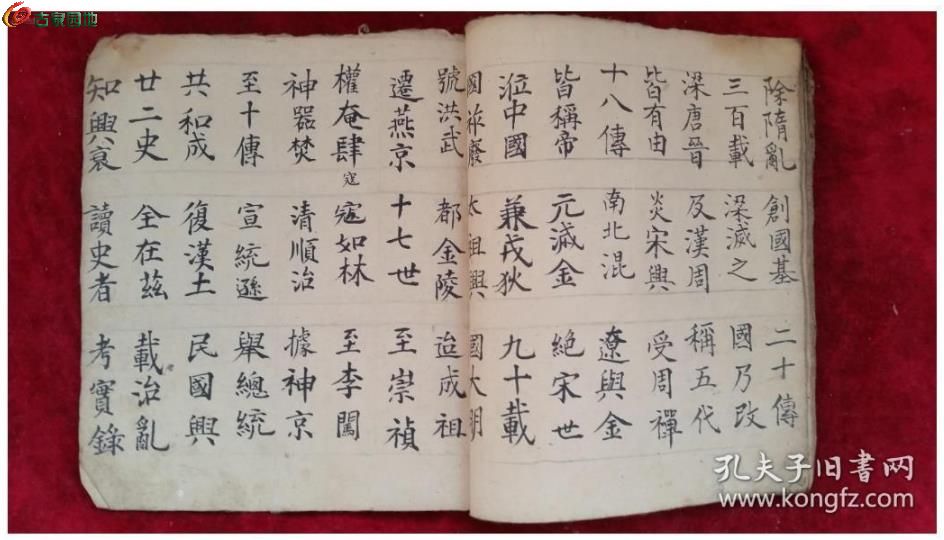 除隋亂 創國基 二十傳
三百載 梁滅之 國乃改
梁唐晉 及漢周 稱五代
皆有由 炎宋興 受周禪
十八傳 南北混 遼與金
皆稱帝 元滅金 絕宋世
涖中國 兼戎狄 九十載
國祚廢 太祖興 國大明
號洪武 都金陵 迨成祖
遷燕京 十七世 至崇禎
權奄肆 寇 寇如林 至李闖
神器焚 清順治 據神京
至十傳 宣統遜 舉總統
共和成 復漢土 民國興
廿二史 全在茲 載治亂
知興衰 讀史者 考實錄
古泉园地
孔夫子旧书网
www.kongfz.com